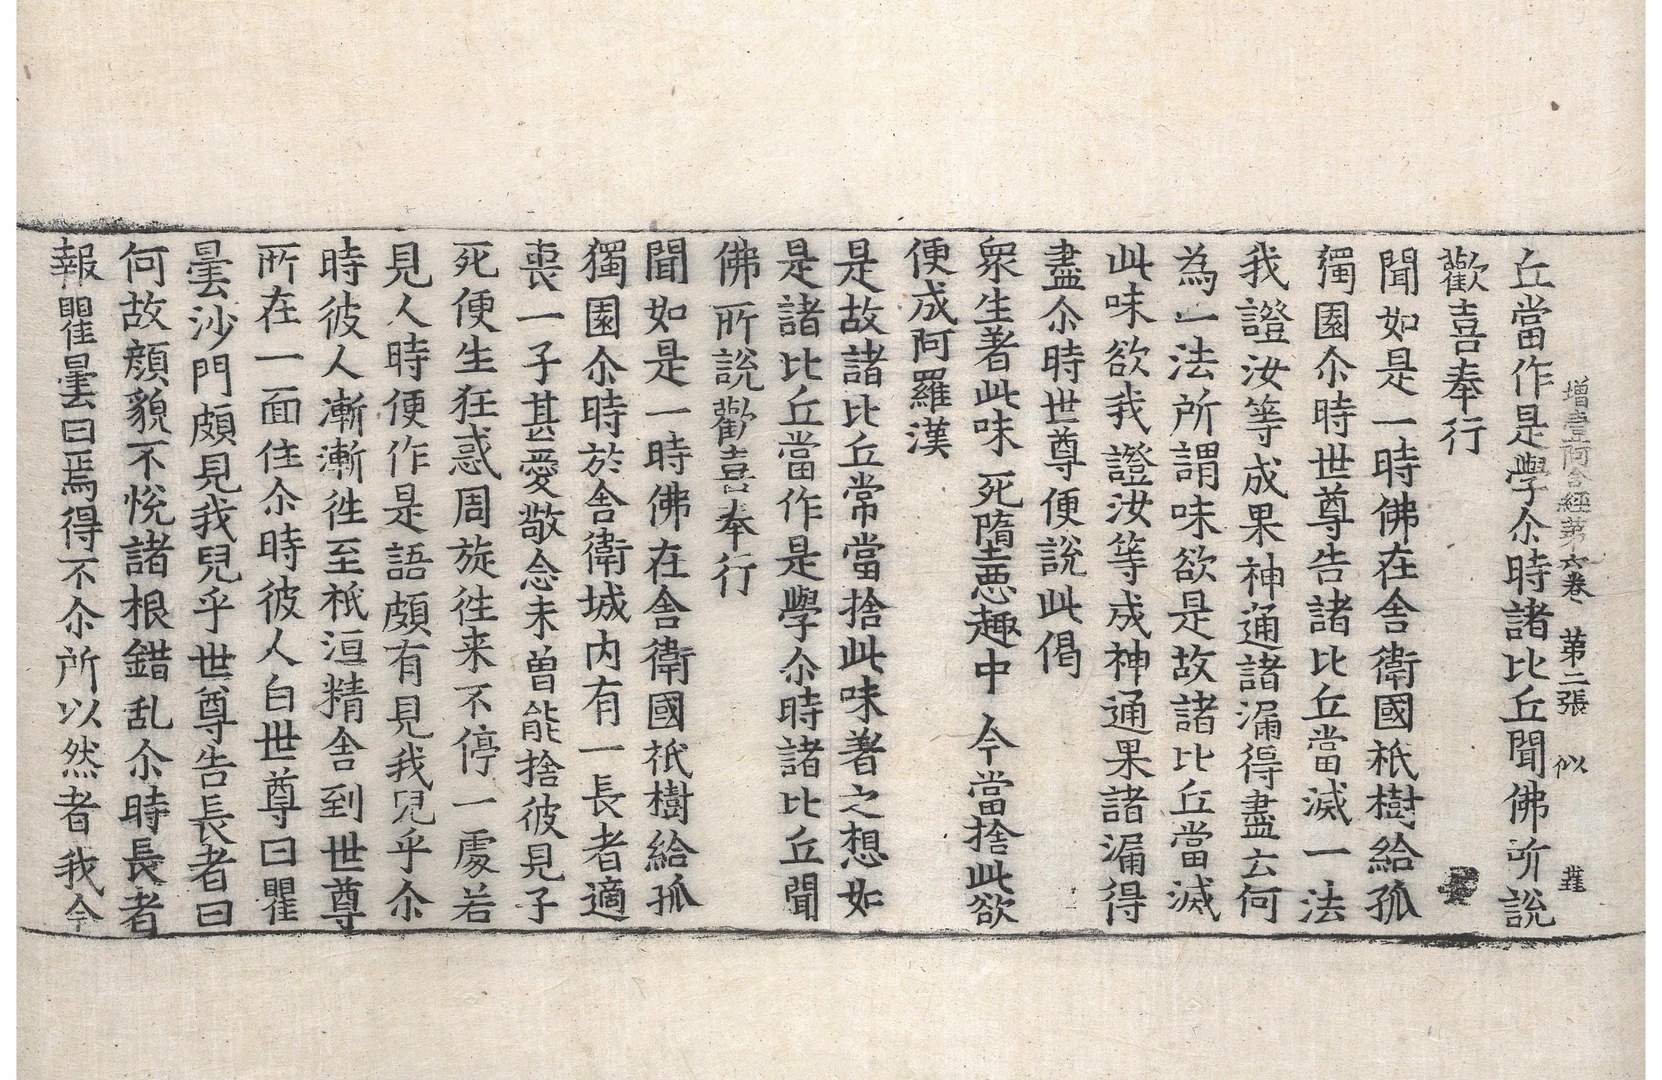 增壹阿含經第六卷 第二張 似
丘當作是學尒時諸比丘聞佛所說
歡喜奉行
聞如是一時佛在舍衛國祇樹給孤
獨園尒時世尊告諸比丘當滅一法
我證汝等成果神通諸漏得盡云何
為一法所謂味欲是故諸比丘當滅
此味欲我證汝等成神通果諸漏得
盡尒時世尊便說此偈
衆生著此味 死墮惡趣中 今當捨此欲
便成阿羅漢
是故諸比丘常當捨此味著之想如
是諸比丘當作是學尒時諸比丘聞
佛所說歡喜奉行
聞如是一時佛在舍衛國祇樹給孤
獨園尒時於舍衛城內有一長者適
喪一子甚愛敬念未曾能捨彼見子
死便生狂惑周旋往来不停一處若
見人時便作是語頗有見我兒乎尒
時彼人漸漸往至祇洹精舍到世尊
所在一面住尒時彼人白世尊曰瞿
曇沙門頗見我兒乎世尊告長者曰
何故顔貌不悅諸根錯乱尒時長者
報瞿曇曰焉得不尒所以然者我今